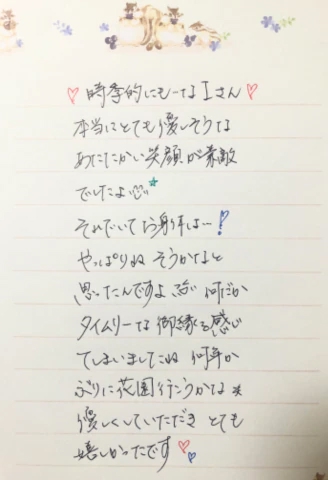 ♡時季的にもーなIさん♡
本当にとても優しそうな
あたたかい笑顔が素敵
でしたよ
それでいてお
やっぱりね そうかなと
思ったんですよ 何だか
タイムリーな御縁を感じ
てしまいましたね 何年か
ぶりに花園行こうかな
優しくしていただき とても
嬉しかったです♡♡